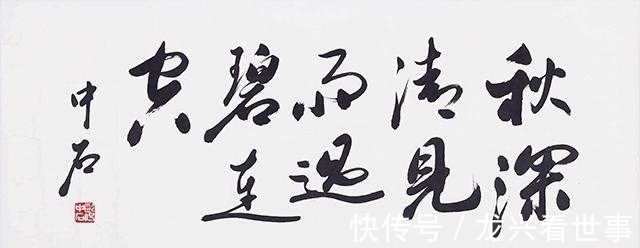 秋深
清見
雨過
碧連
空
中石
快传号 / 龙兴看世事